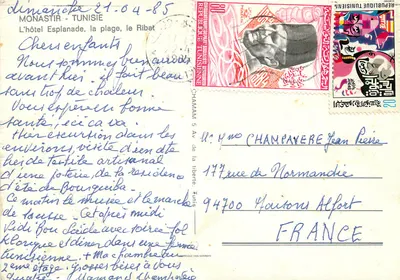 dimanche 21-04-85
MONASTIR - TUNISIE
L'hôtel Esplanade, la plage, le Ribat
Chers enfants
Nous sommes bien arrivés
avant hier. il fait beau
sans trop de chaleur.
Vous espérons bonne
santé, ici ça va.
Hier excursion dans les
environs, visite d'un ate
lier de textile artisanal
d'une poterie, de la residence
d'été de Bourguiba.
Ce matin le musée et le marché
de Sousse. Cet après midi
Sidi Bou Saïde avec soirée fol
klorique et diner dans une
Tunisienne. Ma chambre au
2ème étage. Grosses bises à vous
REPUBLIQUE TUNISIENNE
REPUBLIQUE TUNISIENNE
Mr Mme CHAMPAVERE Jean Pierre
177 rue de Normandie
94700 Maisons Alfort
FRANCE